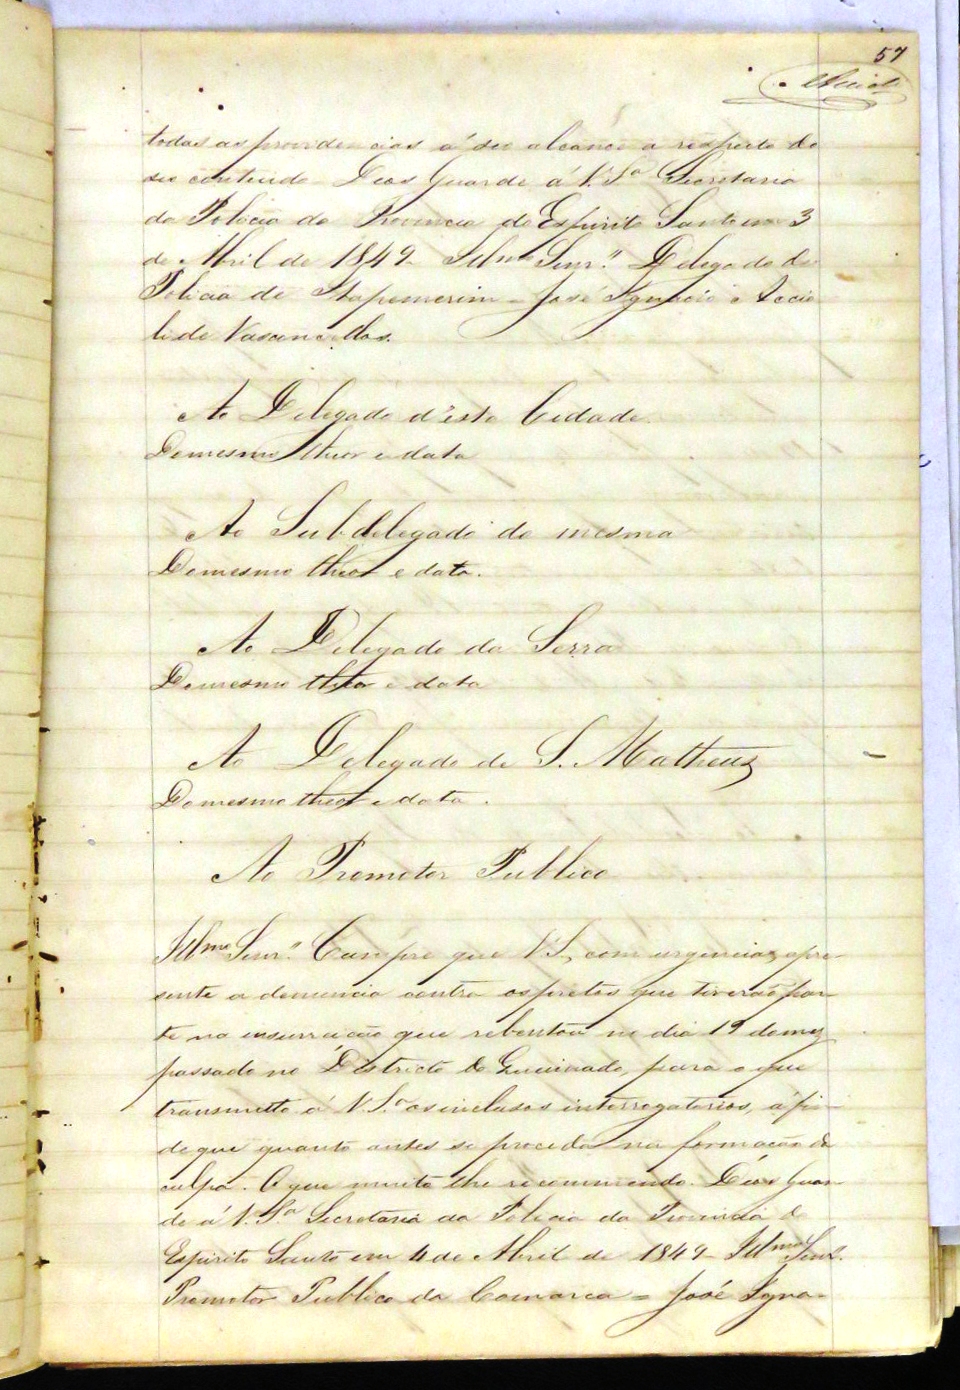 57
Accioli
todas as providencias á seo alcance a respeito do
seo conteudo Deos Guarde á V. Sª Secretaria
da Policia da Provincia do Espirito Santo em 3
de Abril de 1849 Illmo Senr. Delegado de
Policia de Itapemerim = José Ignacio Accio
li de Vasconcellos.
Ao Delegado d'esta Cidade
Do mesmo theor e data
Ao Subdelegado da mesma
Do mesmo theor e data.
Ao Delegado da Serra
Do mesmo theor e data
Ao Delegado de S. Matheus
Do mesmo theor e data.
Ao Promotor Publico
Illmo Senr. Cumpre que V. S. com urgencia, apre-
sente a denuncia contra os pretos que tiverão par-
te na insurreição que rebentou no dia 19 do mez
passado no Districto do Queimado, para o que
transmitto á V. Sª os inclusos interrogatorios, á fim
de que quanto antes se proceda na formação da
culpa. O que muito lhe recommendo. Deos Guar-
de á V. Sª Secretaria da Policia da Provincia do
Espirito Santo em 4 de Abril de 1849 Illmo Senr.
Promotor Publico da Comarca = José Igna-